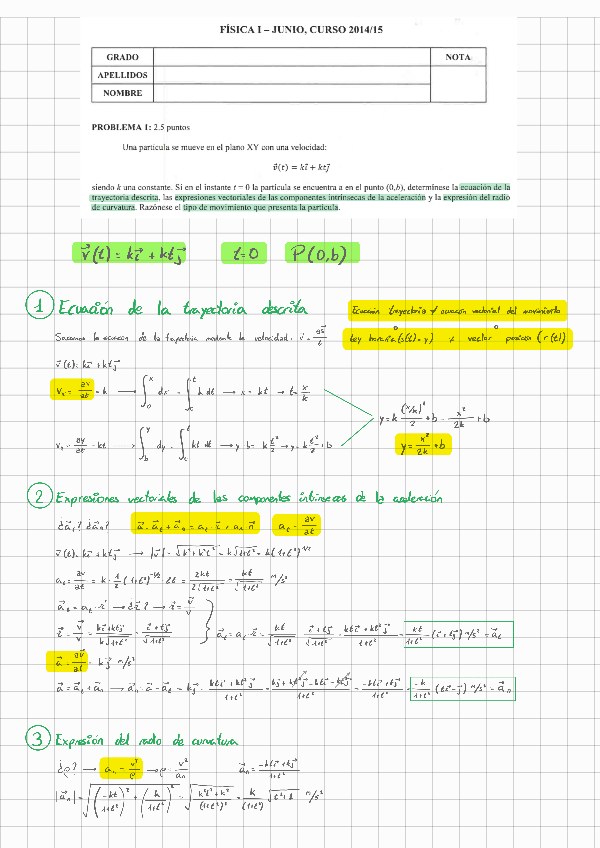 FÍSICA I – JUNIO, CURSO 2014/15
GRADO
NOTA
APELLIDOS
NOMBRE
PROBLEMA 1: 2.5 puntos
Una partícula se mueve en el plano XY con una velocidad:
v⃗(t) = ki⃗ + ktj⃗
siendo k una constante. Si en el instante t = 0 la partícula se encuentra a en el punto (0,b), determínese la ecuación de la
trayectoria descrita, las expresiones vectoriales de las componentes intrínsecas de la aceleración y la expresión del radio
de curvatura. Razónese el tipo de movimiento que presenta la partícula.
v⃗(t) = ki⃗ + ktj⃗ t=0 P(0,b)
1 Ecuación de la trayectoria descrita
Ecuación trayectoria ≠ ecuación vectorial del movimiento
Sacamos la ecuación de la trayectoria mediante la velocidad.
Ley horaria (s(t) = y) ≠ vector posición (r(t))
v⃗(t) = ki⃗ + ktj⃗
vₓ = ∂x/∂t = k → ∫₀ˣ dx = ∫₀ᵗ k dt → x = kt → t = x/k
y = k (x/k)²/2 + b = x²/2k + b
v_y = ∂y/∂t = kt → ∫_b^y dy = ∫₀ᵗ kt dt → y - b = k t²/2 → y = k t²/2 + b
y = x²/2k + b
2 Expresiones vectoriales de las componentes intrínsecas de la aceleración
¿a⃗t? ¿a⃗n? a⃗ = a⃗t + a⃗n = at · τ⃗ + an n⃗ at = ∂v/∂t
v⃗(t) = ki⃗ + ktj⃗ → |v⃗| = √(k² + k²t²) = k√(1+t²) = k(1+t²)^1/2
at = ∂v/∂t = k · 1/2 (1+t²)^-1/2 · 2t = 2kt/2√(1+t²) = kt/√(1+t²) m/s²
a⃗t = at · τ⃗ → ¿τ⃗? → τ⃗ = v⃗/v
τ⃗ = v⃗/v = (ki⃗+ktj⃗)/k√(1+t²) = (i⃗+tj⃗)/√(1+t²)
a⃗t = at · τ⃗ = kt/√(1+t²) · (i⃗+tj⃗)/√(1+t²) = (kti⃗+kt²j⃗)/(1+t²) = kt/(1+t²) · (i⃗+tj⃗) m/s² = a⃗t
a⃗ = ∂v⃗/∂t = kj⃗ m/s²
a⃗ = a⃗t + a⃗n → a⃗n = a⃗ - a⃗t = kj⃗ - (kti⃗+kt²j⃗)/(1+t²) = (kj⃗+kt²j⃗-kti⃗-kt²j⃗)/(1+t²) = (-kti⃗+kj⃗)/(1+t²) = -k/(1+t²) (ti⃗-j⃗) m/s² = a⃗n
3 Expresión del radio de curvatura
¿ρ? → an = v²/ρ → ρ = v²/an a⃗n = (-kti⃗+kj⃗)/(1+t²)
|a⃗n| = √((-kt/(1+t²))² + (k/(1+t²))²) = √((k²t²+k²)/(1+t²)²) = k/(1+t²) √(t²+1) m/s²